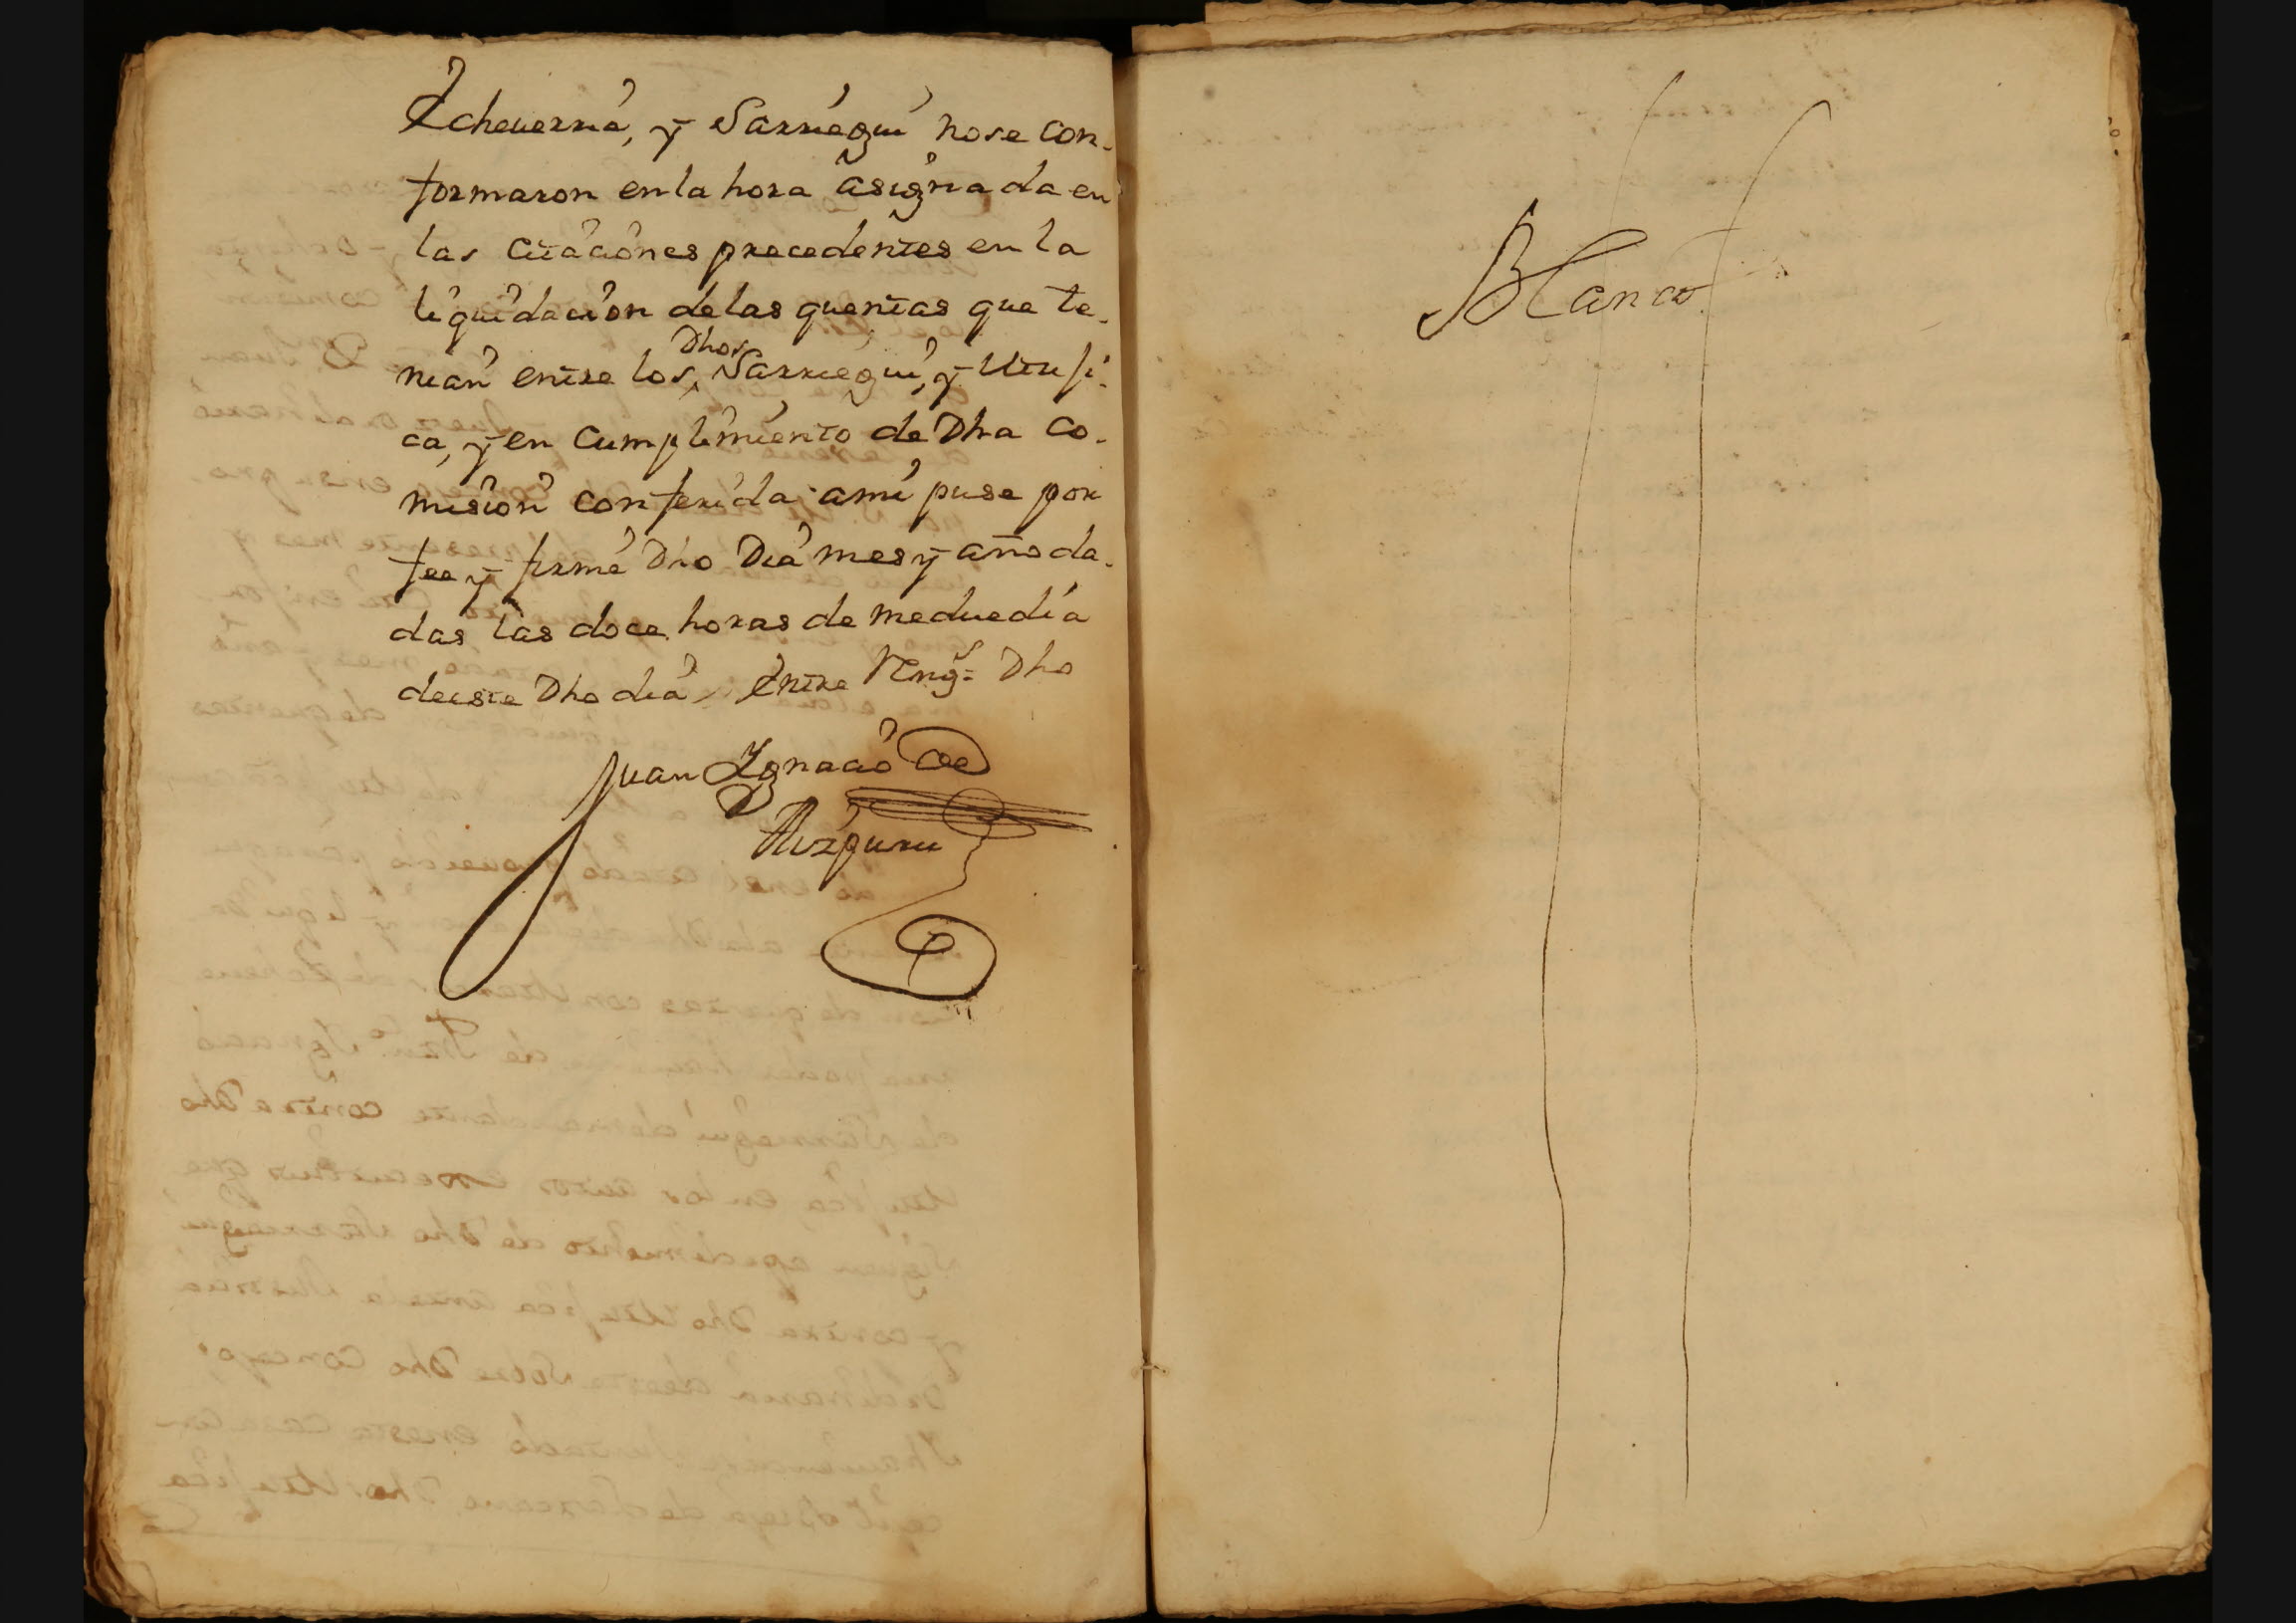 Echeuerria, y Sarriegui nose con-
formaron en la hora asignada en
las citaciones precedentes en la
liquidacion de las quentas que te-
nian entre los Dhos Sarriegui, y Utu si-
ca, y en cumplimiento de Dha co-
mision conferida a mi puse por
fee y firmé Dho Dia mes y año da-
das las doce horas de mediedia
deeste Dho dia, Entre Rengs. Dho
Juan Ygnacio de
Aizpuru
Blanco